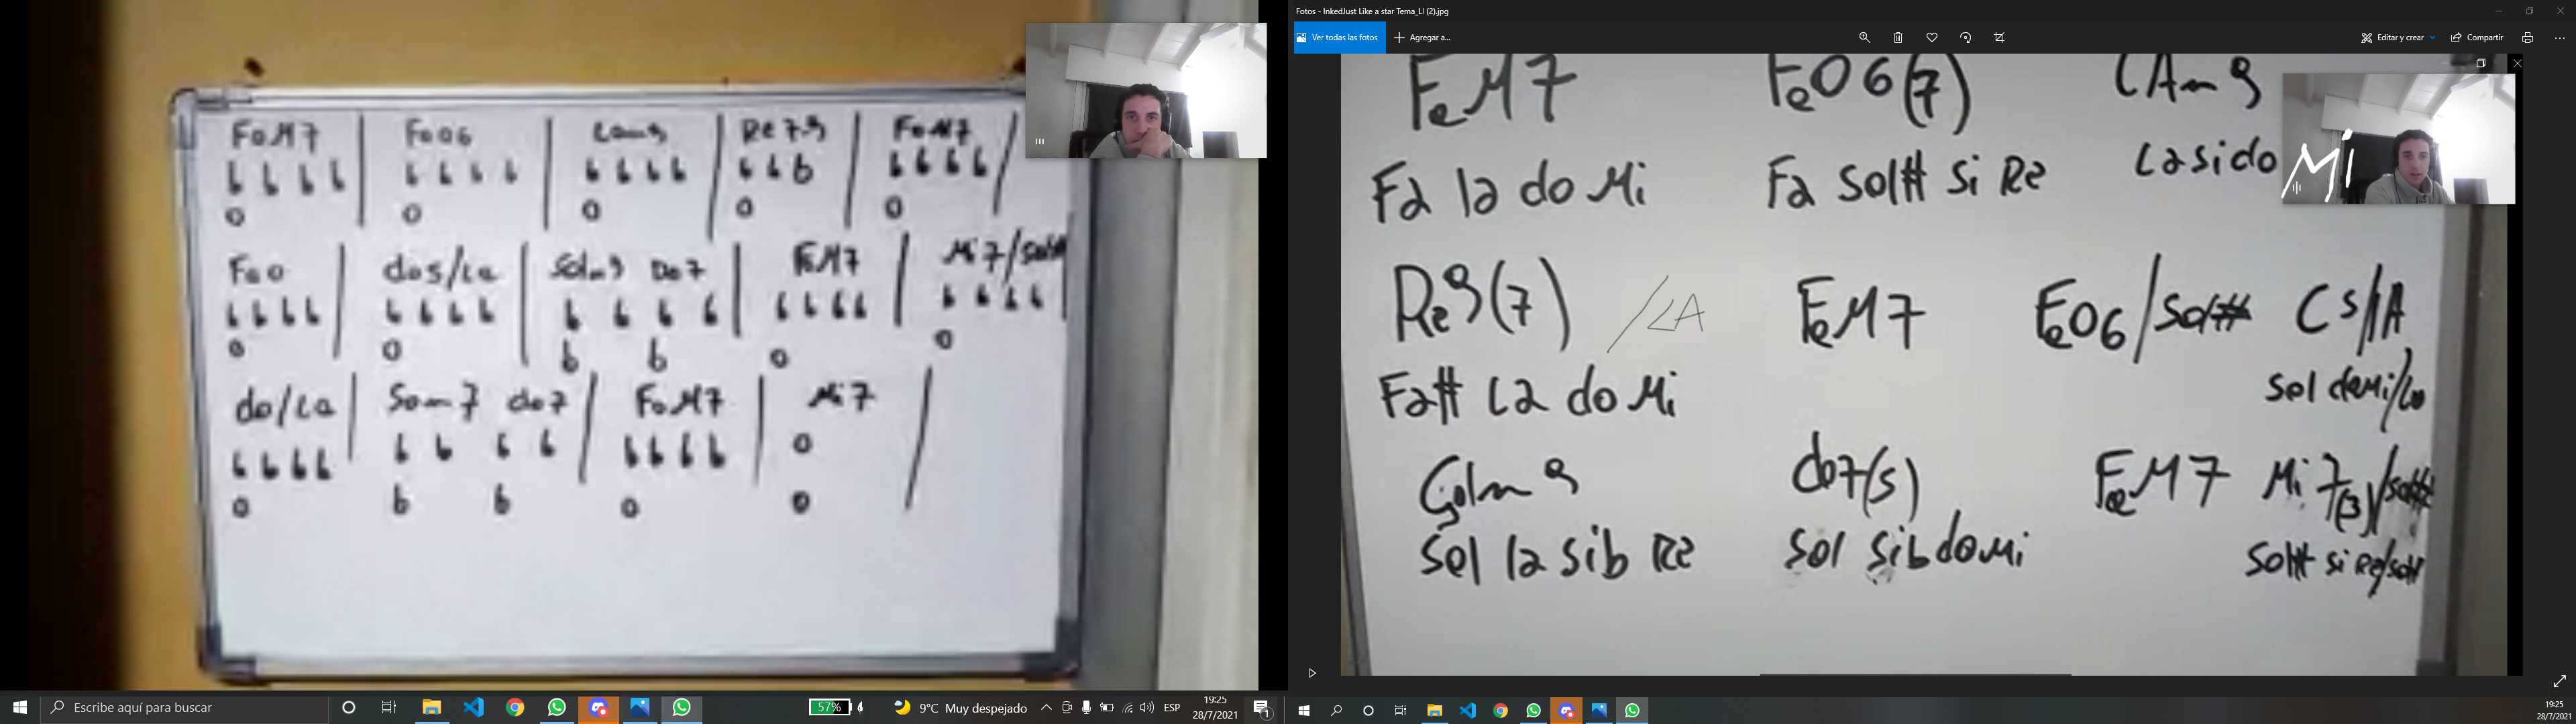 FaM7 Fa06 Lam9 Re7.9 FaM7
b b b b b b b b b b b b b b b b b b b
o o o o o
Fao do5/La Solm9 Do7 FaM7 Mi7/Sol#
b b b b b b b b b b b b b b b b b b b b
o o b b o o
do/La Solm7 do7 FaM7 Mi7
b b b b b b b b b b b b o
o b b o o
Escribe aquí para buscar
57%
9°C Muy despejado
ESP
19:25
28/7/2021
1
Fotos - InkedJust Like a star Tema_LI (2).jpg
Ver todas las fotos
Agregar a...
Editar y crear
Compartir
FaM7 Fa06(7) LAm9
Fa la do Mi Fa Sol# Si Re La si do Mi
Re9(7) /LA FaM7 Fa06/Sol# C5/LA
Fa# La do Mi Sol do Mi/La
Solm9 do7(5) FaM7 Mi7(3)/Sol#
Sol la sib Re Sol sib do Mi Sol# si Re/sol#
19:25
28/7/2021